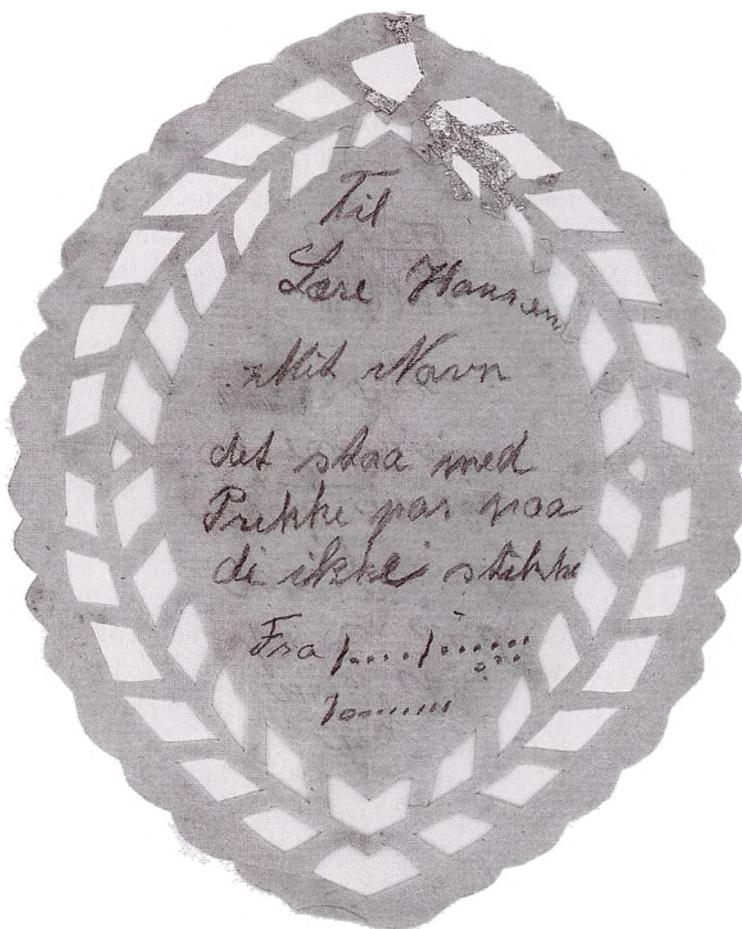 Til
Lære Hansen
Mit Navn
det staa med
Prikke pas paa
di ikke stikke
Fra